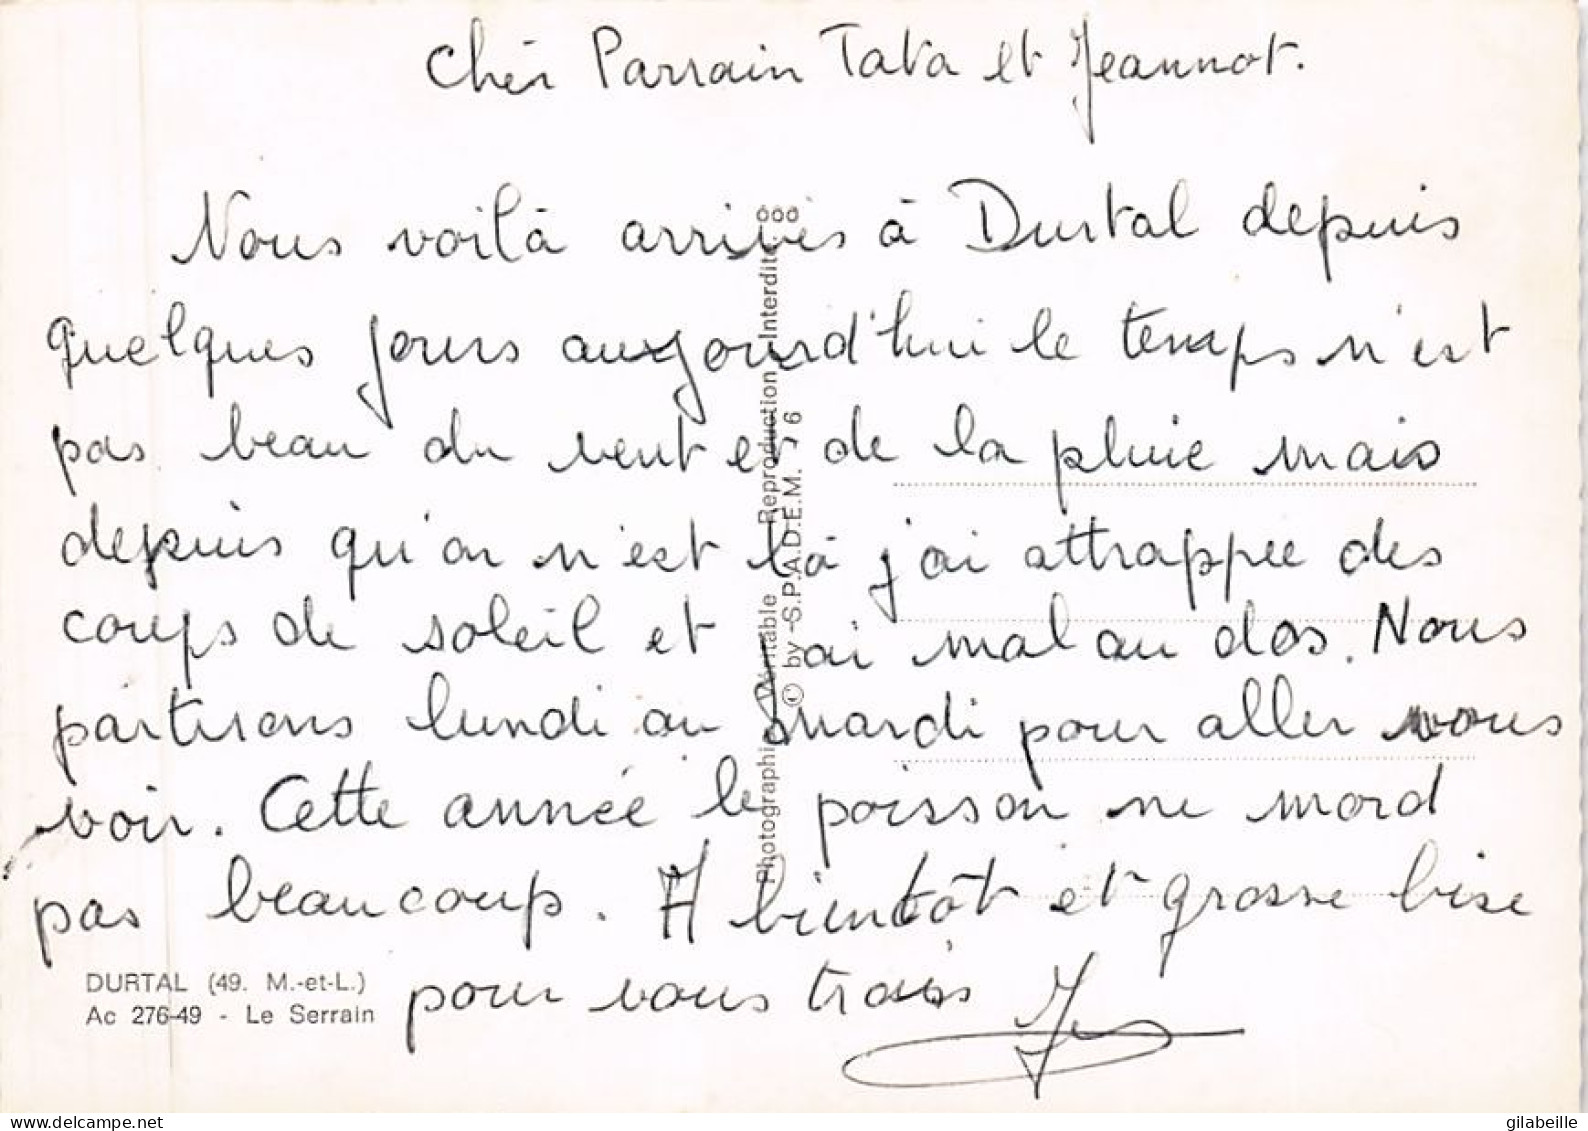 Cher Parrain Tata et Jeannot.
Nous voilà arrivés à Durtal depuis
quelques jours aujourd'hui le temps n'est
pas beau du vent et de la pluie mais
depuis qu'on n'est là j'ai attrappée des
coups de soleil et j'ai mal au dos. Nous
partirons lundi ou mardi pour aller vous
voir. Cette année le poisson ne mord
pas beaucoup. A bientôt et grosse bise
pour vous trois
DURTAL (49. M.-et-L.)
Ac 276-49 - Le Serrain
Photographie Véritable Reproduction Interdite
© by S.P.A.D.E.M. 6
www.delcampe.net
gilabeille